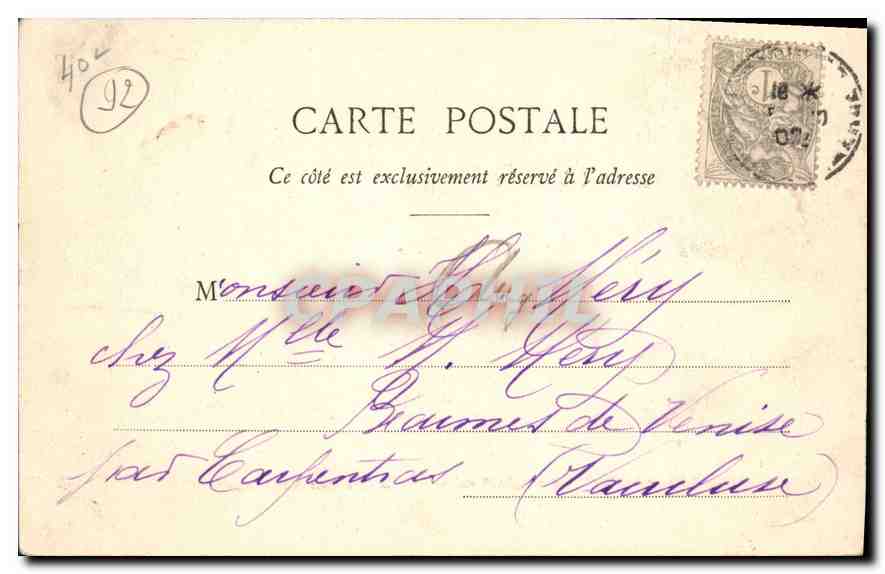 40
92
CARTE POSTALE
Ce côté est exclusivement réservé à l'adresse
Monsieur Méry
chez Mlle M. Méry
Beaumes de Venise
par Carpentras (Vaucluse)
CPAPHIL